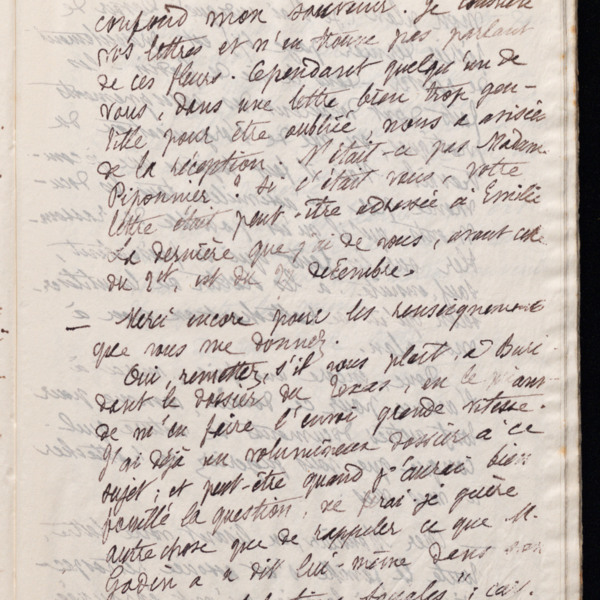 confond mon souvenir. Je
vos lettres et n'en trouve pas parlant
de ces fleurs. Cependant quelqu'un de
vous, dans une lettre bien trop gen-
tille pour être oubliée, nous a avisées
de la réception. N'était-ce pas Madame
Piponnier ? Si c'était vous, votre
lettre était peut-être adressée à Emilie
La dernière que j'ai de vous, avant celle
du 2 ct, est du décembre.
— Merci encore pour les renseignements
que vous me donnez.
Oui, remettez, s'il vous plait, à Buri-
dant le dossier du Texas, en le priant
de m'en faire l'envoi grande vitesse.
J'ai déjà un volumineux dossier à ce
sujet ; et peut-être quand j'aurai bien
fouillé la question, ne ferai-je guère
autre chose que de rappeler ce que M.
Godin a dit lui-même dans son
sociales" ; car